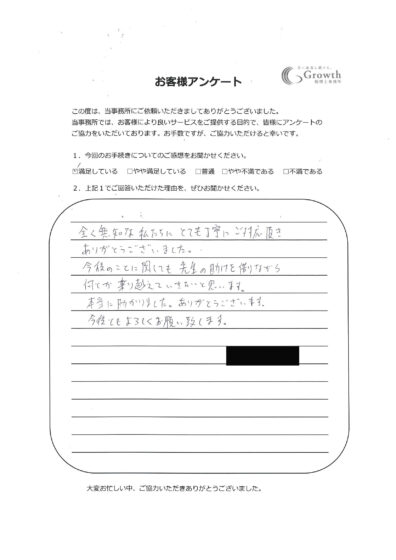 Growth
お客様アンケート
この度は、当事務所にご依頼いただきましてありがとうございました。
当事務所では、お客様により良いサービスをご提供する目的で、皆様にアンケートの
ご協力をいただいております。お手数ですが、ご協力いただけると幸いです。
１．今回のお手続きについてのご感想をお聞かせください。
☑満足している　□やや満足している　□普通　□やや不満である　□不満である
２．上記１でご回答いただけた理由を、ぜひお聞かせください。
全く無知な私たちに とても丁寧に ご対応頂き
ありがとうございました。
今後のことに関しても 先生の助けを借りながら
何とか乗り越えていきたいと思います。
本当に助かりました。ありがとうございます。
今後ともよろしくお願い致します。
大変お忙しい中、ご協力いただきありがとうございました。